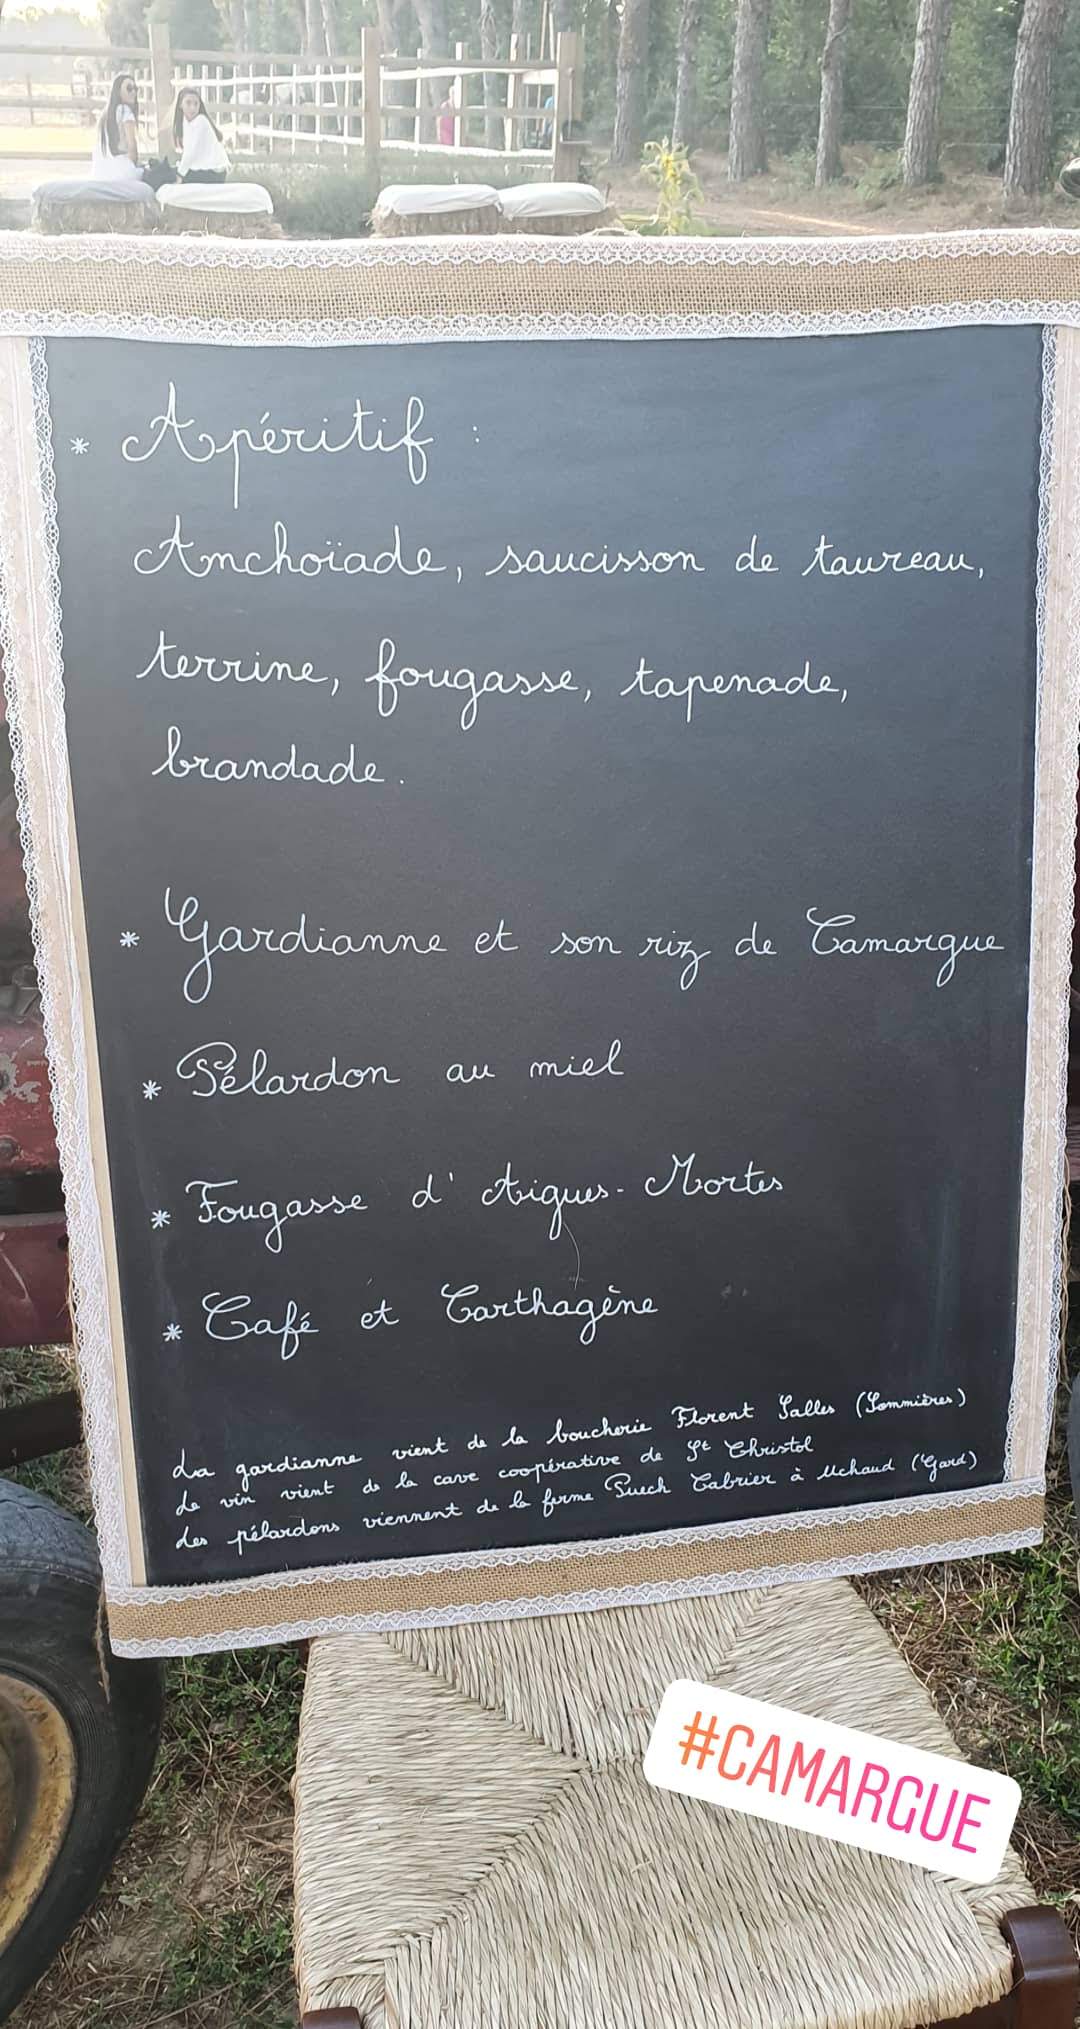 * Apéritif :
Anchoïade, saucisson de taureau,
terrine, fougasse, tapenade,
brandade.
* Gardianne et son riz de Camargue
* Pélardon au miel
* Fougasse d'Aigues-Mortes
* Café et Carthagène
La gardianne vient de la boucherie Florent Salles (Sommières)
Le vin vient de la cave coopérative de St Christol
Les pélardons viennent de la ferme Puech Cabrier à Uchaud (Gard)
#CAMARGUE